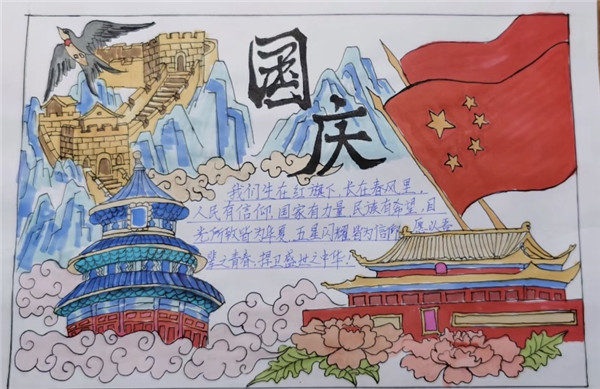 国庆
我们生在红旗下，长在春风里，
人民有信仰，国家有力量，民族有希望，目
光所致皆为华夏，五星闪耀皆为信仰，愿以吾
辈之青春、捍卫盛世之中华！